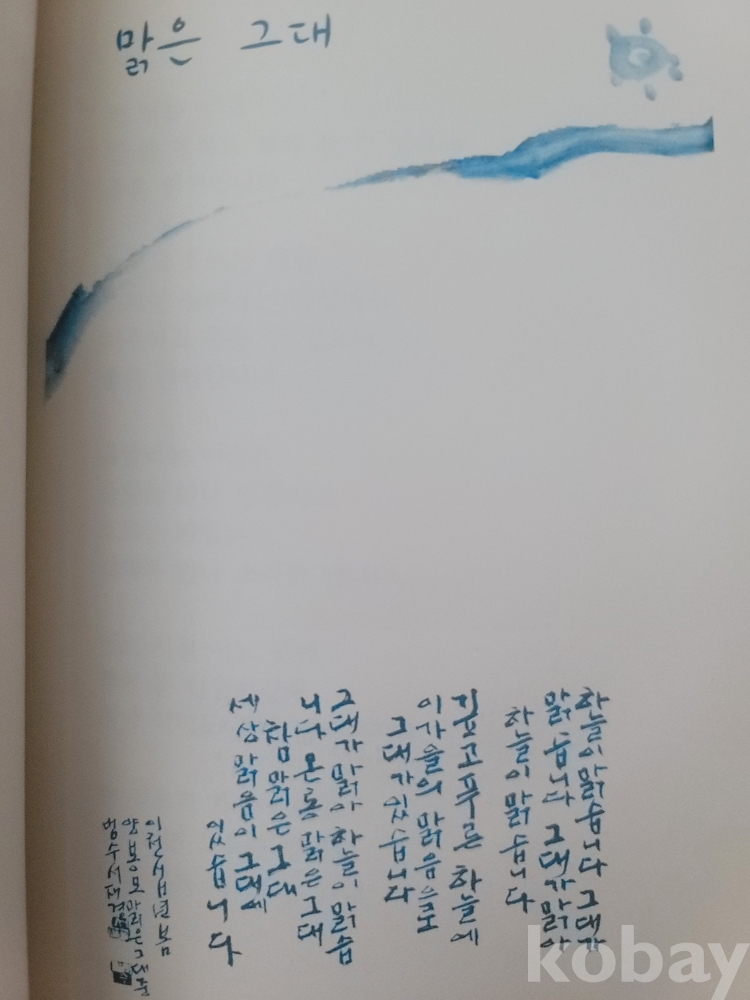 맑은 그대
하늘이 맑습니다 그대가
맑습니다 그대가 맑아
하늘이 맑습니다
깊고 푸른 하늘에
이 가을의 맑음으로
그대가 있습니다
그대가 맑아 하늘이 맑습
니다 온통 맑은 그대
참 맑은 그대
세상 맑음이 그대에
있습니다
이천십년 봄
맑은 그대 중
범수서재
kobay